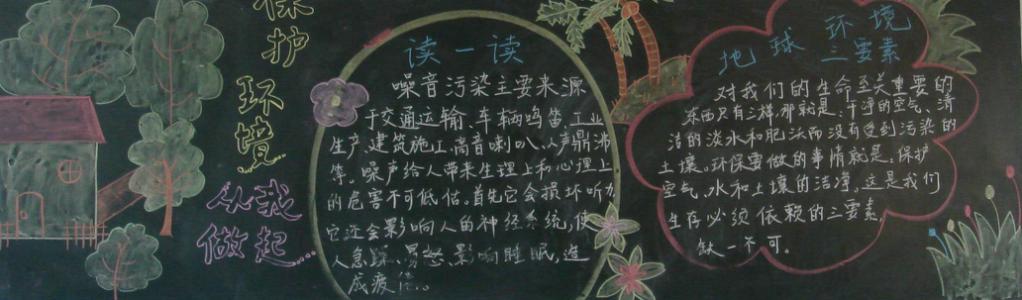 保护环境
从我做起....
读一读
噪音污染主要来源
于交通运输、车辆鸣笛、工业
生产、建筑施工、高音喇叭、人声鼎沸
等。噪声给人带来生理上和心理上
的危害不可低估。首先它会损坏听力
它还会影响人的神经系统,使
人急躁、易怒、影响睡眠,造
成疲倦。
地球环境
三要素
对我们的生命至关重要的
东西只有三样,那就是:干净的空气、清
洁的淡水和肥沃而没有受到污染的
土壤。环保要做的事情就是:保护
空气、水和土壤的洁净。这是我们
生存必须依赖的三要素,
缺一不可。